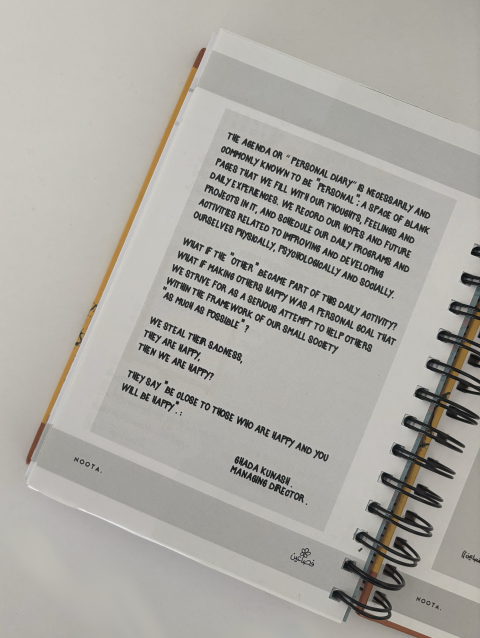 THE AGENDA OR "PERSONAL DIARY" IS NECESSARILY AND
COMMONLY KNOWN TO BE "PERSONAL": A SPACE OF BLANK
PAGES THAT WE FILL WITH OUR THOUGHTS, FEELINGS AND
DAILY EXPERIENCES. WE RECORD OUR HOPES AND FUTURE
PROJECTS IN IT, AND SCHEDULE OUR DAILY PROGRAMS AND
ACTIVITIES RELATED TO IMPROVING AND DEVELOPING
OURSELVES PHYSICALLY, PSYCHOLOGICALLY AND SOCIALLY.
WHAT IF THE "OTHER" BECAME PART OF THIS DAILY ACTIVITY?
WHAT IF MAKING OTHERS HAPPY WAS A PERSONAL GOAL THAT
WE STRIVE FOR AS A SERIOUS ATTEMPT TO HELP OTHERS
"WITHIN THE FRAMEWORK OF OUR SMALL SOCIETY
"AS MUCH AS POSSIBLE"?
WE STEAL THEIR SADNESS,
THEY ARE HAPPY,
THEN WE ARE HAPPY?
THEY SAY "BE CLOSE TO THOSE WHO ARE HAPPY AND YOU
WILL BE HAPPY".:
GHADA KUNASH.
MANAGING DIRECTOR.
NOOTA.
NOOTA.